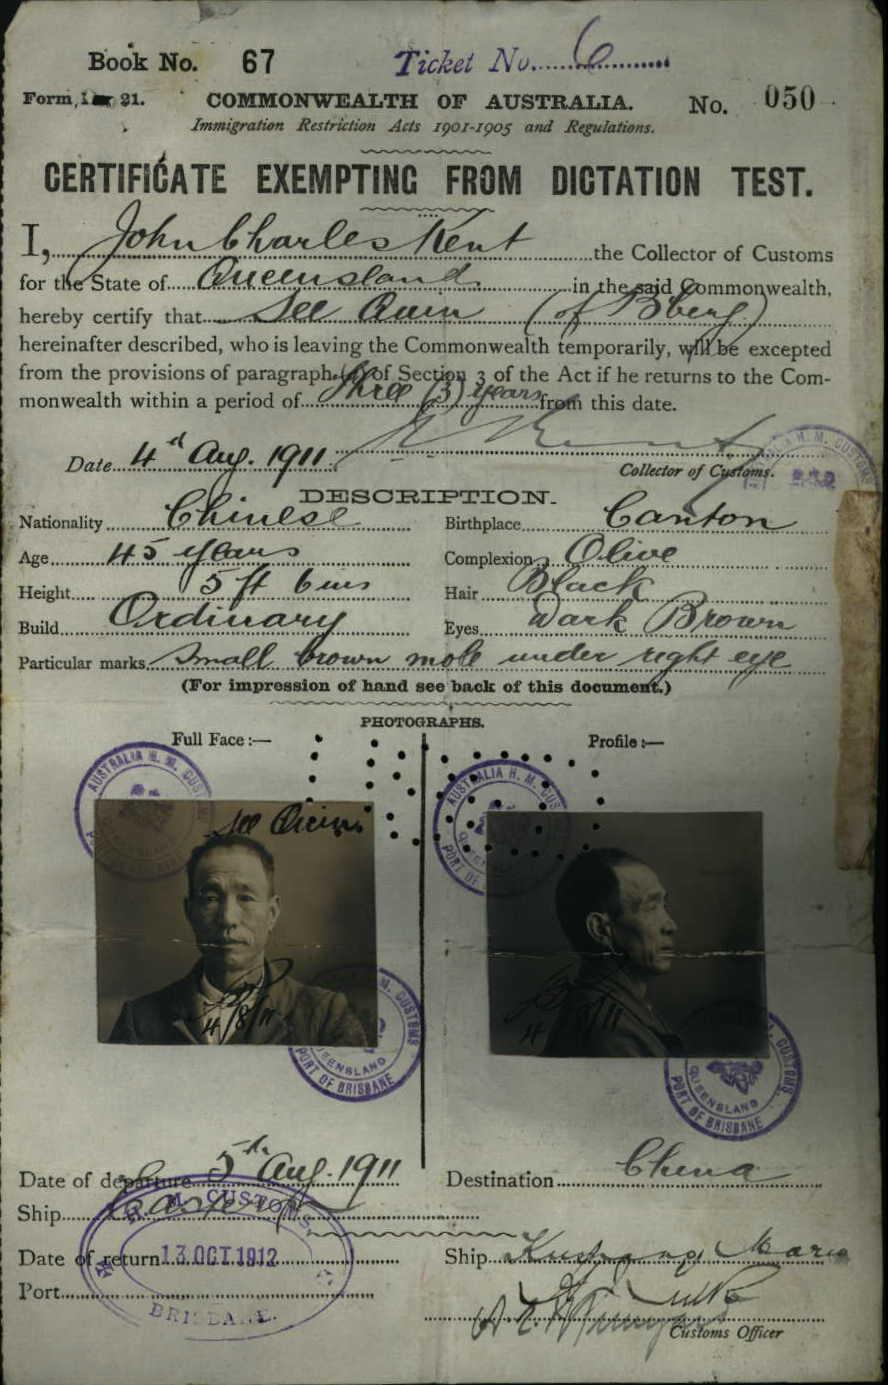 Book No. 67 Ticket No. 6
Form 21. COMMONWEALTH OF AUSTRALIA. No. 050
Immigration Restriction Acts 1901-1905 and Regulations.
CERTIFICATE EXEMPTING FROM DICTATION TEST.
I, John Charles Kent the Collector of Customs
for the State of Queensland in the said Commonwealth,
hereby certify that See Quin (of B'berg)
hereinafter described, who is leaving the Commonwealth temporarily, will be excepted
from the provisions of paragraph of Section 3 of the Act if he returns to the Com-
monwealth within a period of three (3) years from this date.
Date 4th Aug. 1911
Collector of Customs.
DESCRIPTION.
Nationality Chinese Birthplace Canton
Age 45 years Complexion Olive
Height 5 ft 6 ins Hair Black
Build Ordinary Eyes Dark Brown
Particular marks small brown mole under right eye
(For impression of hand see back of this document.)
PHOTOGRAPHS.
Full Face :— Profile :—
AUSTRALIA H. M. CUSTOMS
AUSTRALIA H. M. CUS
PORT OF
See Quin
4/8/11
4/8/11
H. M. CUSTOMS
QUEENSLAND
PORT OF BRISBANE
CUSTOMS
QUEENSLAND
PORT OF BRISBANE
Date of departure 5th Aug. 1911 Destination China
Ship Eastern
H. M. CUSTOMS
Date of return 13 OCT 1912 Ship Maru
Port
BRISBANE.
Customs Officer